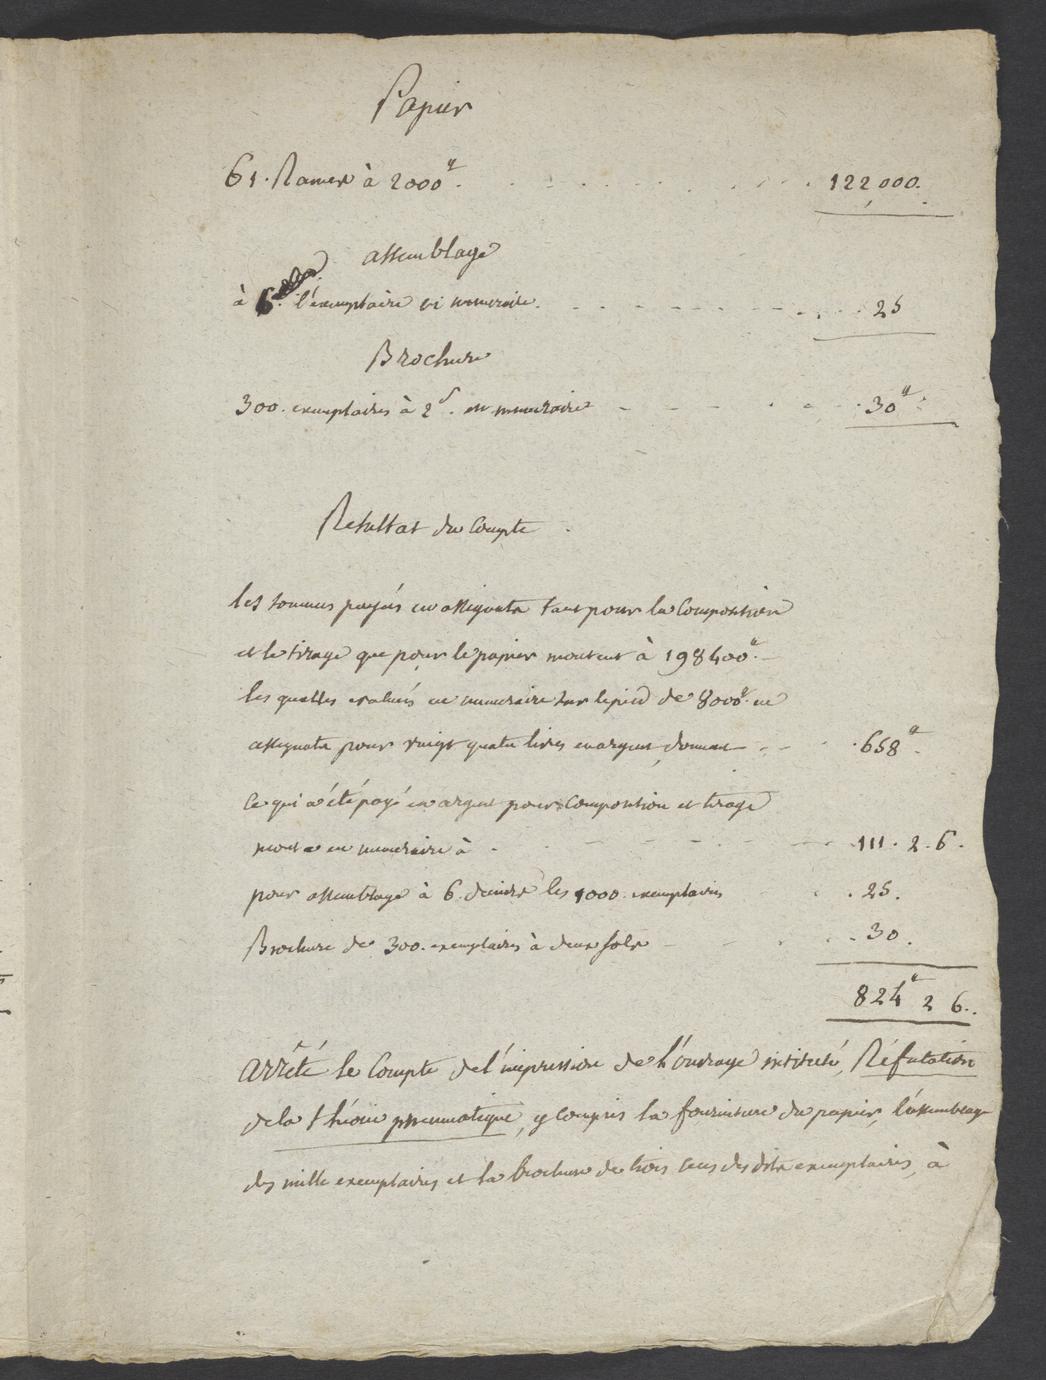 Papier
61. Rames à 2000ᵗᵗ. . . . . . . . . . 122,000.
assemblage
à 6 l'exemplaire en numeraire. - - - - - - - . 25
Brochure
300. exemplaires à 2ˢ. en numeraire - - - - - . 30ᵗᵗ
Resultat du Compte.
les sommes payés en assignats tant pour la Composition
et le tirage que pour le papier montent à 198400ᵗᵗ. -
les quelles evalués en numeraire sur le pied de 8000ᵗᵗ. en
assignats pour vingt quatre livres en argent, donnent - - . 658ᵗᵗ.
Ce qui a été payé en argent pour Composition et tirage
monte en numeraire à - - - - - - 111. 2. 6.
pour assemblage à 6. deniers les 1000. exemplaires . 25.
Brochure de 300. exemplaires à deux sols - - - . 30.
824ᵗᵗ 2 6.
arrêté le Compte de l'impression de l'ouvrage intitulé, Réfutation
de la théorie pneumatique, y compris la fourniture du papier, l'assemblage
des mille exemplaires et la brochure de trois cens des dits exemplaires, à